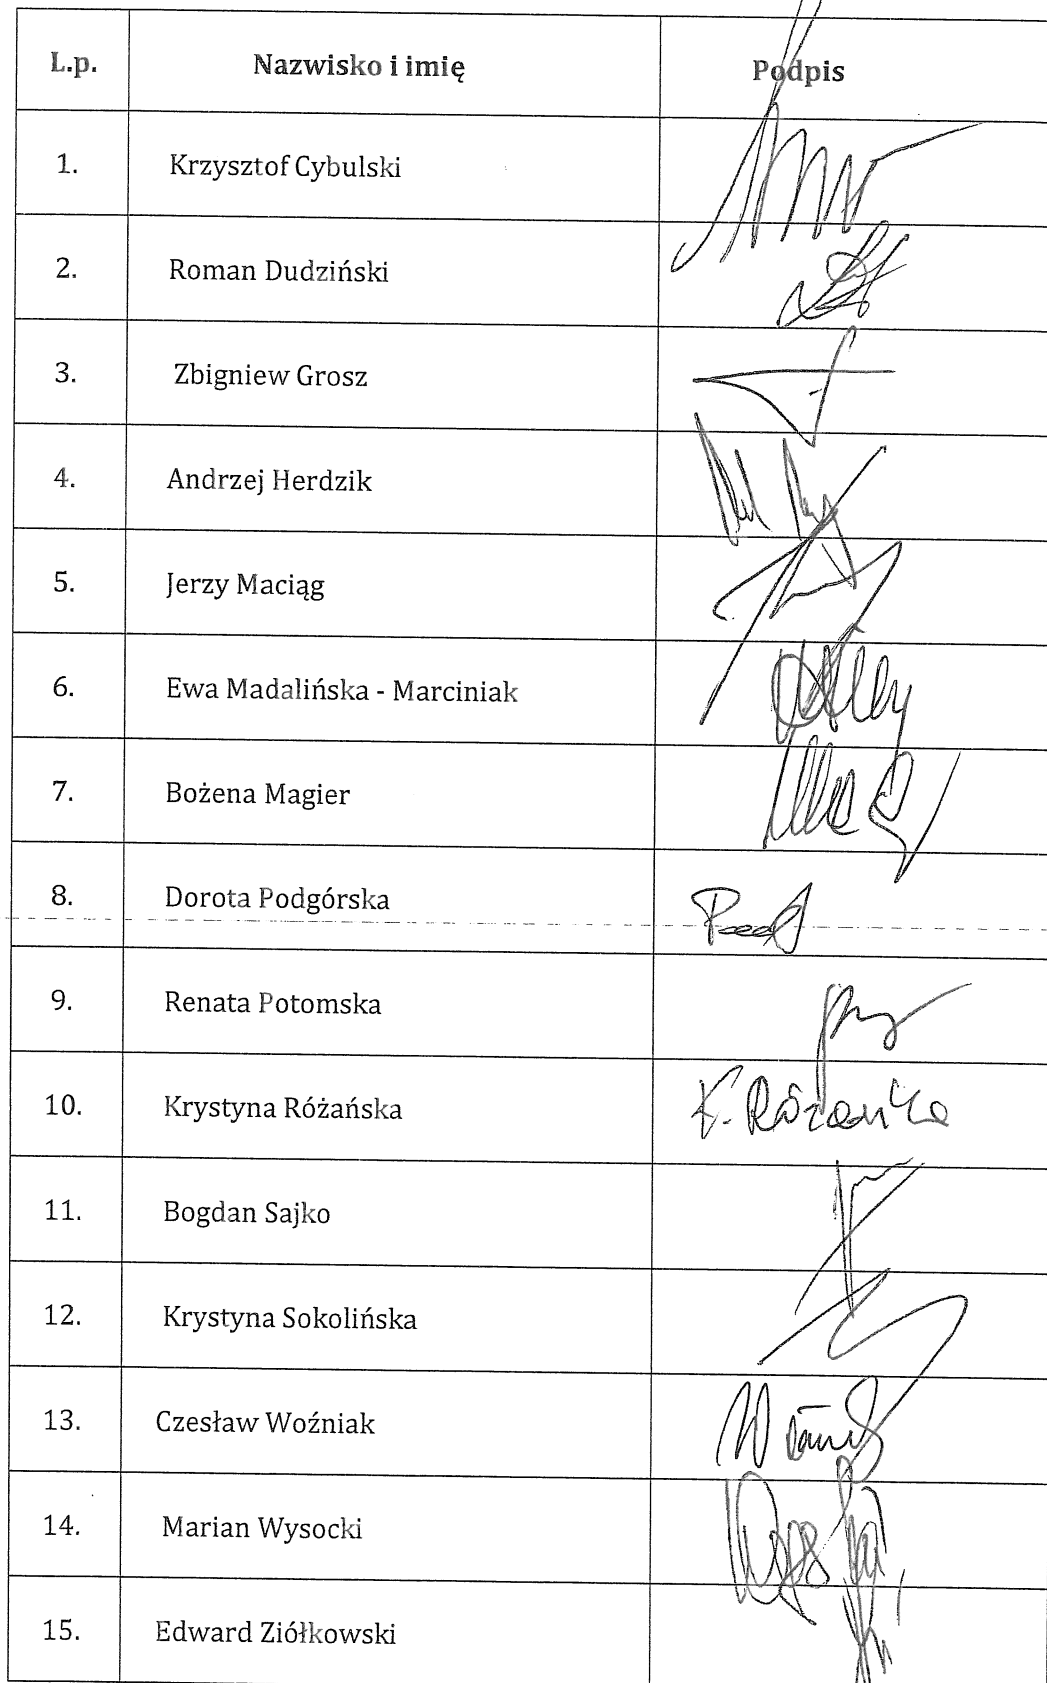 L.p. Nazwisko i imię Podpis
1. Krzysztof Cybulski
2. Roman Dudziński
3. Zbigniew Grosz
4. Andrzej Herdzik
5. Jerzy Maciąg
6. Ewa Madalińska - Marciniak
7. Bożena Magier
8. Dorota Podgórska
9. Renata Potomska
10. Krystyna Różańska K. Różańska
11. Bogdan Sajko
12. Krystyna Sokolińska
13. Czesław Woźniak
14. Marian Wysocki
15. Edward Ziółkowski